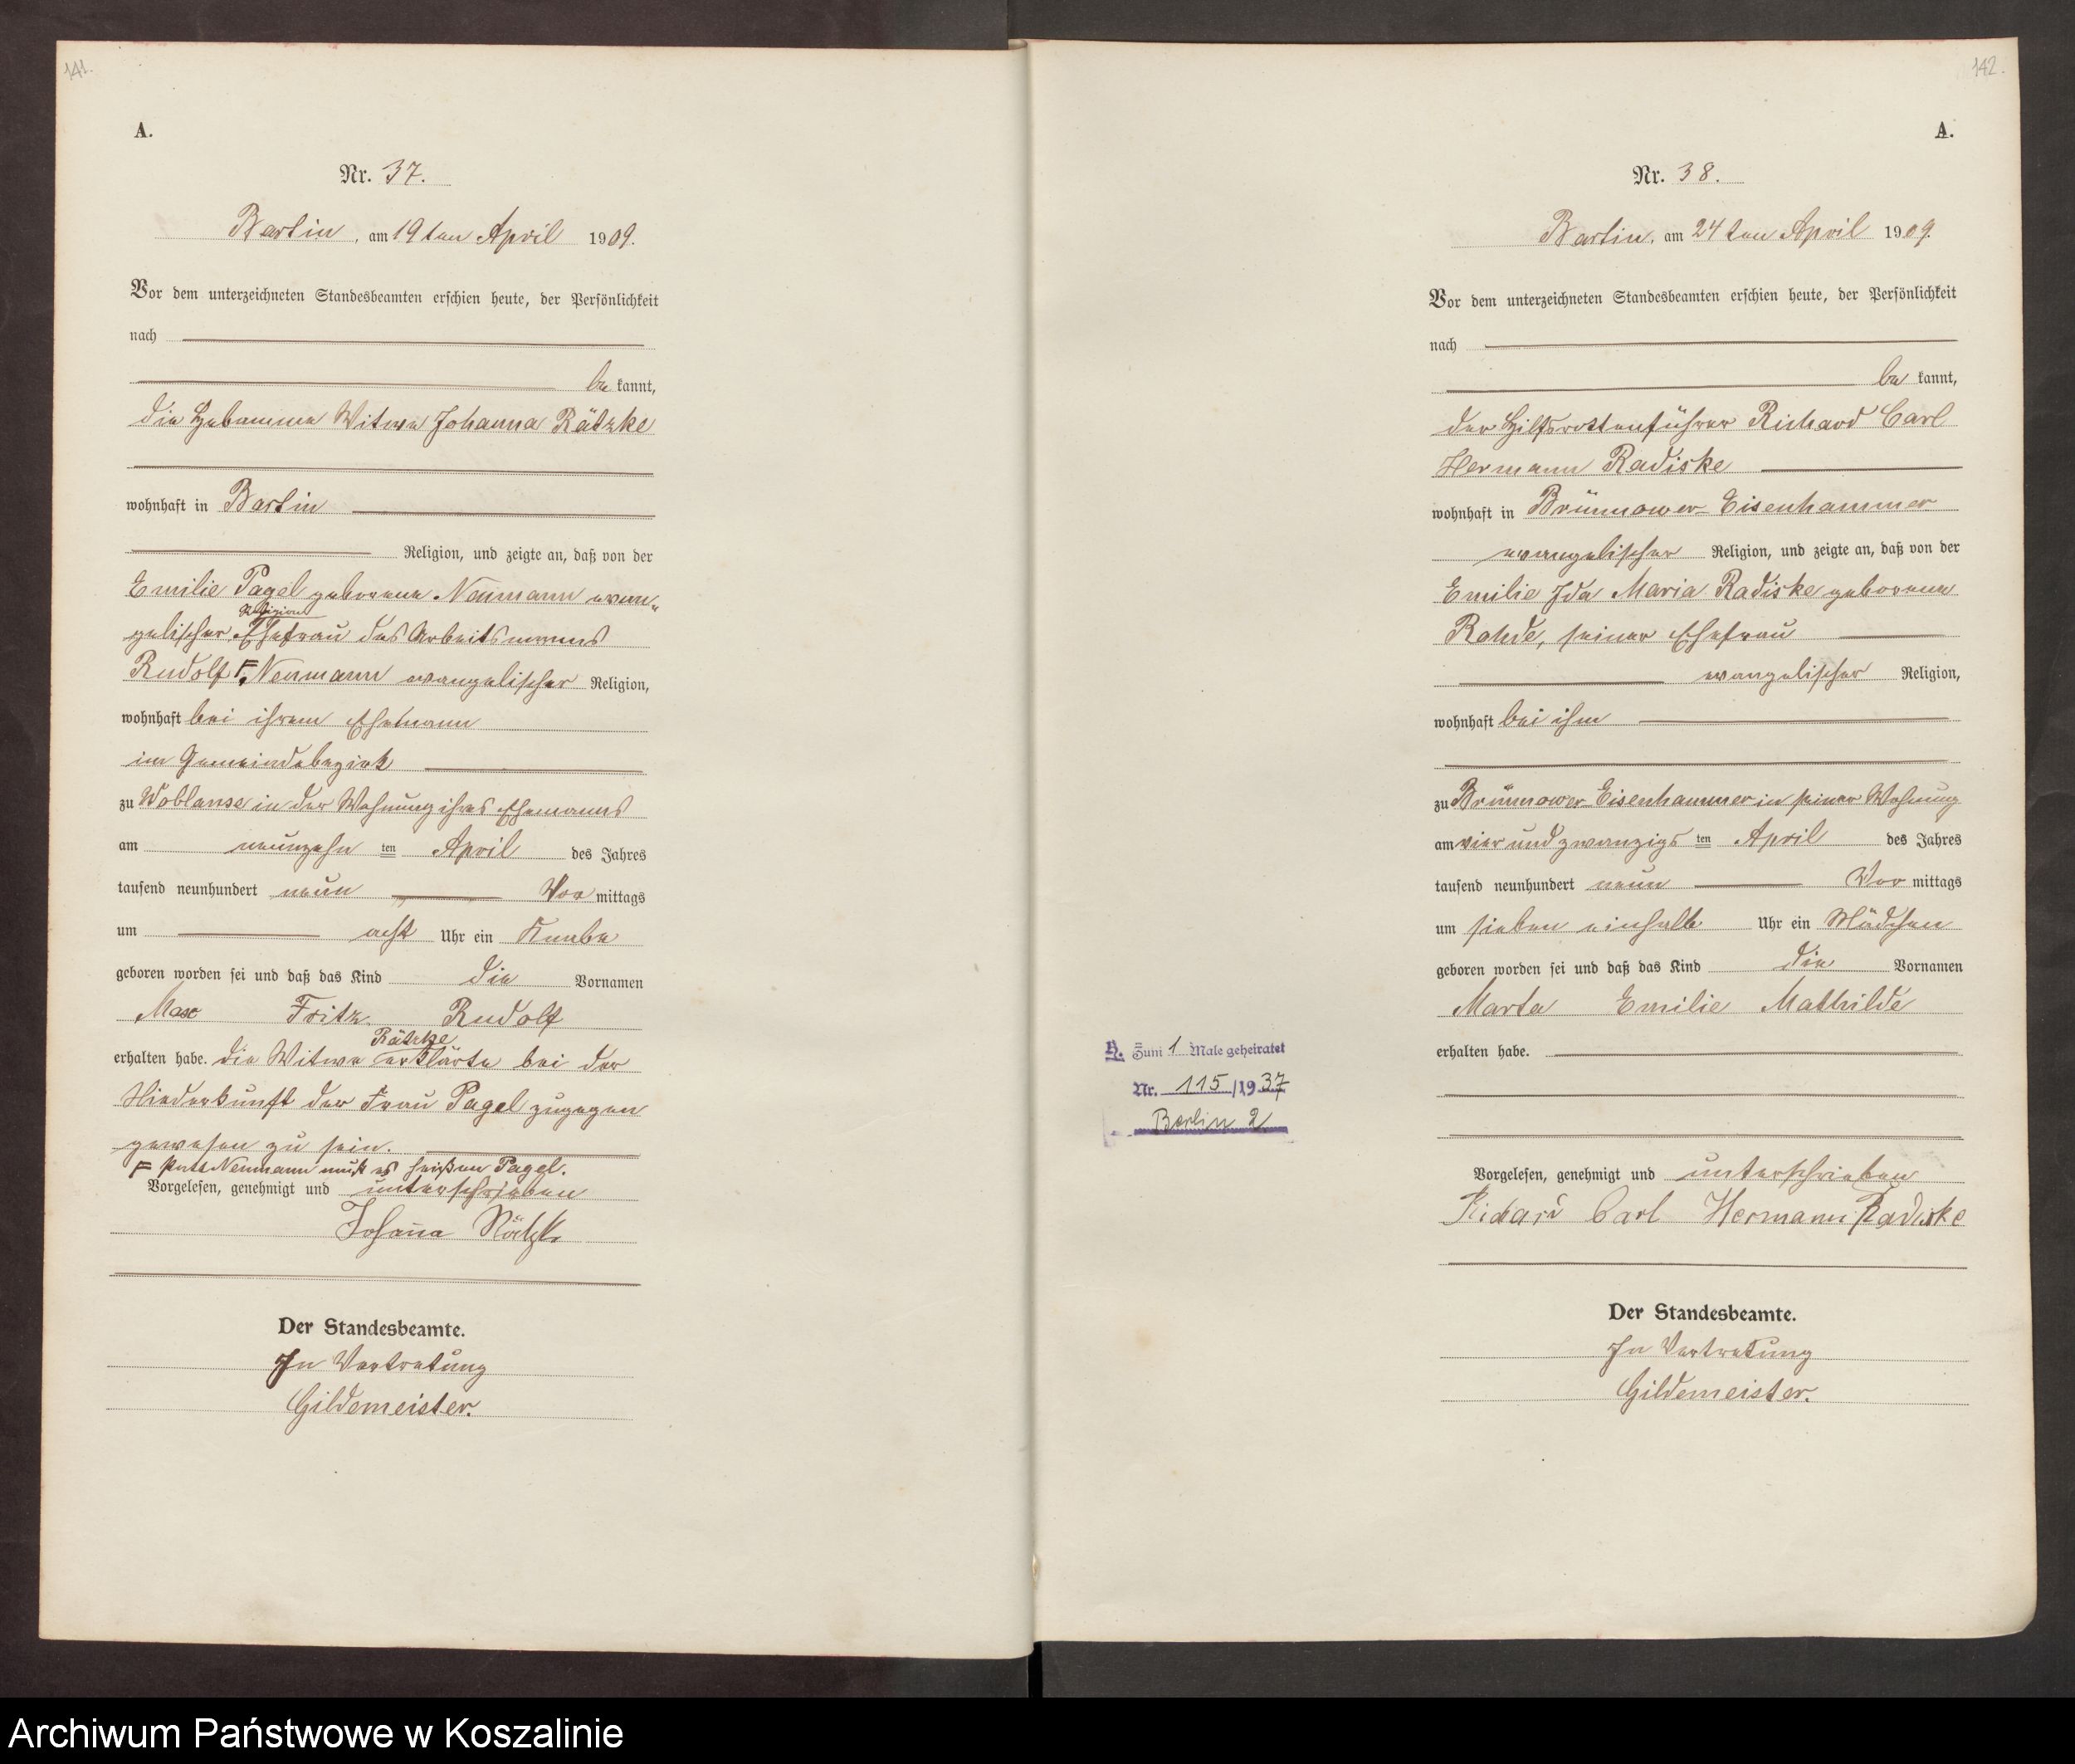 141.
A.
Nr. 37.
Bartin, am 19ten April 1909.
Vor dem unterzeichneten Standesbeamten erschien heute, der Persönlichkeit
nach
be kannt,
die Hebamme Witwe Johanna Rätzke
wohnhaft in Bartin
Religion, und zeigte an, daß von der
Emilie Pagel geborene Neumann evan-
Religion
gelischer, Ehefrau des Arbeitsmanns
Rudolf F. Neumann evangelischer Religion,
wohnhaft bei ihrem Ehemann
im Gemeindebezirk
zu Woblanse in der Wohnung ihres Ehemanns
am neunzehn ten April des Jahres
tausend neunhundert neun Vor mittags
um acht Uhr ein Knabe
geboren worden sei und daß das Kind die Vornamen
Max Fritz Rudolf
Rätzke
erhalten habe. die Witwe erklärte bei der
Niederkunft der Frau Pagel zugegen
gewesen zu sein.
F statt Neumann muß es heißen Pagel.
Vorgelesen, genehmigt und unterschrieben
Johanna Rätzke
Der Standesbeamte.
In Vertretung
Gildemeister.
142.
A.
Nr. 38.
Bartin, am 24ten April 1909.
Vor dem unterzeichneten Standesbeamten erschien heute, der Persönlichkeit
nach
be kannt,
der Hilfsrottenführer Richard Carl
Hermann Radiske
wohnhaft in Brünnower-Eisenhammer
evangelischer Religion, und zeigte an, daß von der
Emilie Ida Maria Radiske geborene
Rohde, seiner Ehefrau
evangelischer Religion,
wohnhaft bei ihm
zu Brünnower-Eisenhammer in seiner Wohnung
am vier und zwanzigs ten April des Jahres
tausend neunhundert neun Vor mittags
um sieben einhalb Uhr ein Mädchen
geboren worden sei und daß das Kind die Vornamen
Marta Emilie Mathilde
erhalten habe.
Vorgelesen, genehmigt und unterschrieben
Richard Carl Hermann Radiske
Der Standesbeamte.
In Vertretung
Gildemeister.
H. Zum 1 Male geheiratet
Nr. 115/1937
Berlin 2
Archiwum Państwowe w Koszalinie